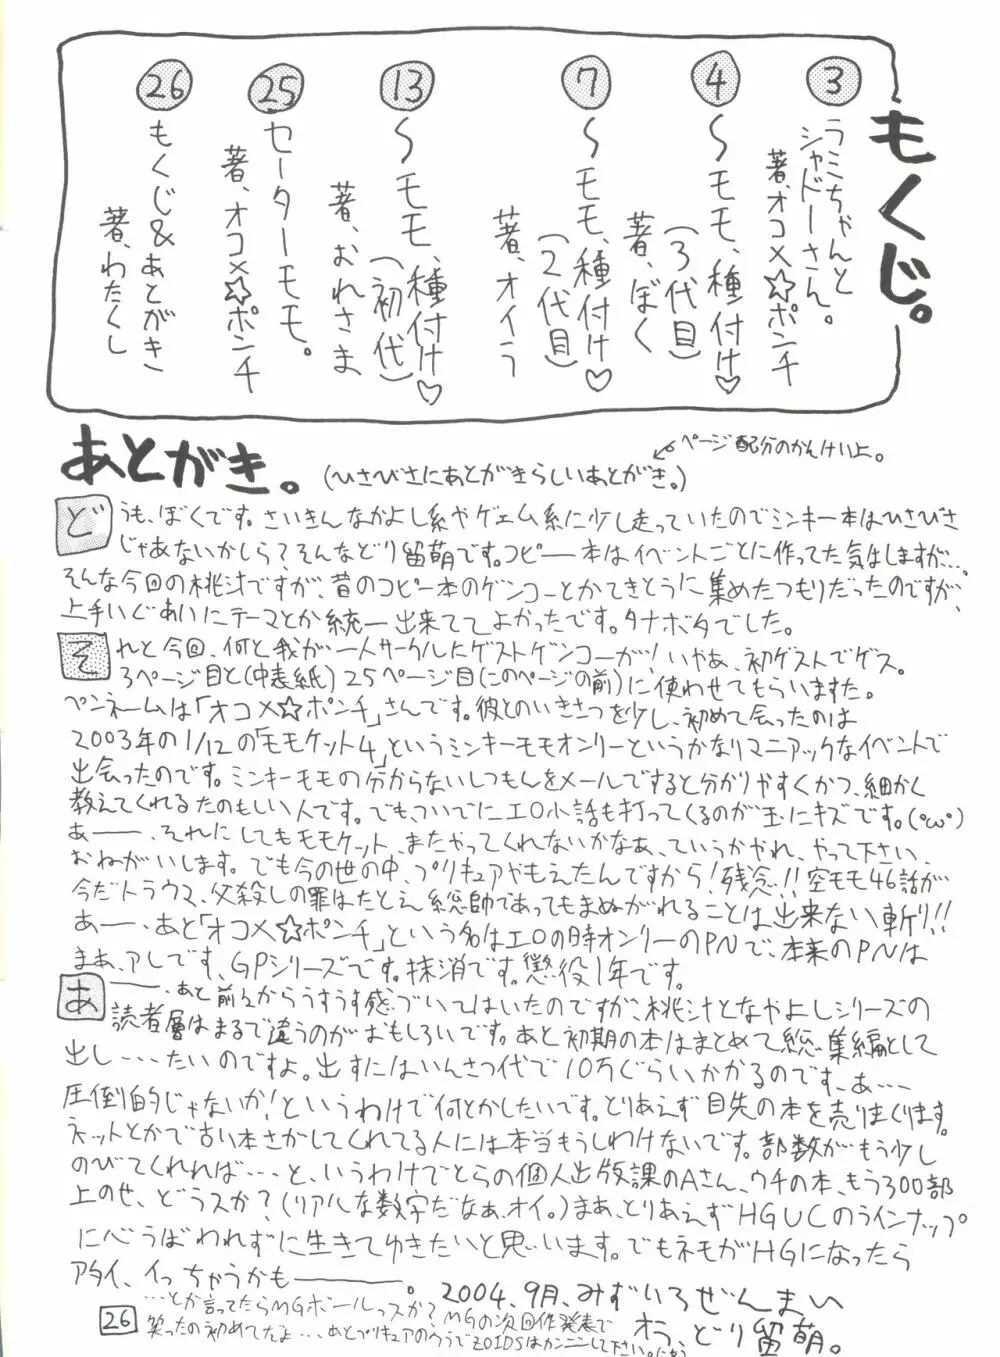 もくじ。
③
ラミちゃんと
シャドーさん。
著、オコメ☆ポンチ
④
～モモ、種付け♡
(3代目)
著、ぼく
⑦
～モモ、種付け♡
(2代目)
著、オイラ
⑬
～モモ、種付け♡
(初代)
著、おれさま
㉕
セーターモモ。
著、オコメ☆ポンチ
㉖
もくじ&あとがき
著、わたくし
あとがき。(ひさびさにあとがきらしいあとがき。)
ページ配分のかんけい上。
どうも、ぼくです。さいきんなかよし系やゲェム系に少し走っていたのでミンキー本はひさびさ
じゃあないかしら?そんなどり留萌です。コピー本はイベントごとに作ってた気はしますが…。
そんな今回の桃汁ですが、昔のコピー本のゲンコーとかてきとうに集めたつもりだったのですが、
上手いぐあいにテーマとか統一出来ててよかったです。タナボタでした。
それと今回、何と我が一人サークルにゲストゲンコーが!いやぁ、初ゲストでゲス。
3ページ目と(中表紙)25ページ目(このページの前)に使わせてもらいました。
ペンネームは「オコメ☆ポンチ」さんです。彼とのいきさつを少し、初めて会ったのは
2003年の1/12の「モモケット4」というミンキーモモオンリーというかなりマニアックなイベントで
出会ったのです。ミンキーモモの分からないしつもんをメールですると分かりやすくかつ、細かく
教えてくれるたのもしい人です。でも、ついでにエロ小話も打ってくるのが玉にキズです。(°ω°)
あ――、それにしてもモモケット、またやってくれないかなぁ、ていうかやれ、やって下さい、
おねがいします。でも今の世の中、プリキュアやもえたんですから!残念!!空モモ46話が
今だトラウマ、父殺しの罪はたとえ総帥であってもまぬがれることは出来ない斬り!!
あ――、あと「オコメ☆ポンチ」という名はエロの時オンリーのPNで、本来のPNは
まぁ、アレです、GPシリーズです。抹消です。懲役1年です。
あ――、あと前々からうすうす感づいてはいたのですが、桃汁となやよしシリーズの
読者層はまるで違うのがおもしろいです。あと初期の本はまとめて総集編として
出し…たいのですよ。出すにはいんさつ代で10万ぐらいかかるのです、あ…
圧倒的じゃないか!というわけで何とかしたいです。とりあえず目先の本を売りまくります。
ネットとかで古い本さがしてくれてる人には本当もうしわけないです。部数がもう少し
のびてくれれば…と、いうわけでとらの個人出版課のAさん、ウチの本、もう300部
上のせ、どうスか?(リアルな数字だなぁ、オイ。)まぁ、とりあえずHGUCのラインナップ
に心うばわれずに生きてゆきたいと思います。でもネモがHGになったら
アタイ、イっちゃうかも――――。
2004、9月、みずいろぜんまい
オラ、どり留萌。
…とか言ってたらMGボールっスか?MGの次回作発表で
笑ったの初めてだよ…あとプリキュアのウラでZOIDSはカンニンして下さい。
26